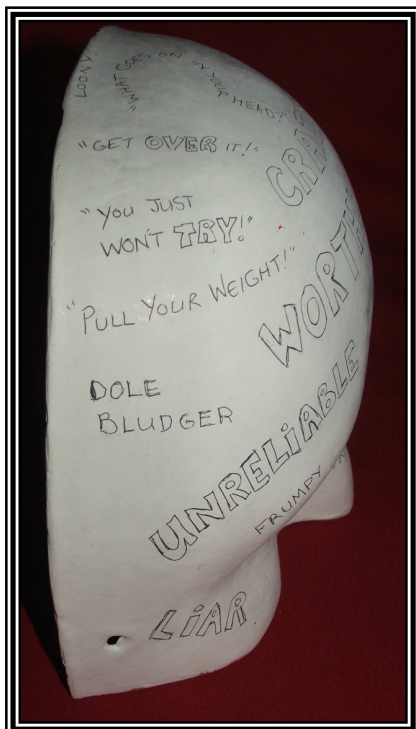 LOONY.
"WHAT GOES ON IN YOUR HEAD?"
"GET OVER IT!"
CR
"YOU JUST
WON'T TRY!"
"PULL YOUR WEIGHT!"
WORTH
DOLE
BLUDGER
UNRELIABLE
FRUMPY
LIAR